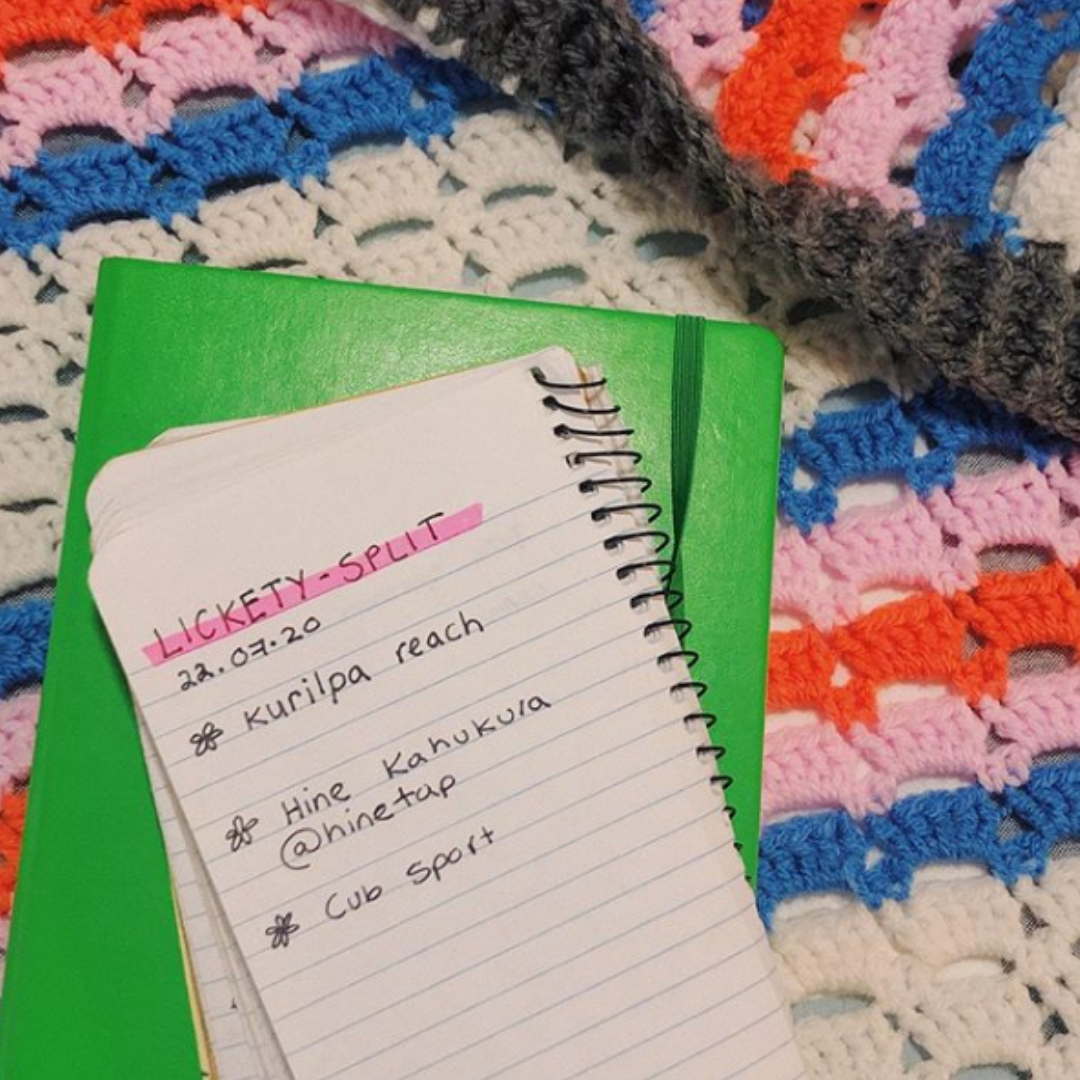 LICKETY-SPLIT
22.07.20
Kurilpa reach
Hine Kahukura
@hinetap
Cub Sport